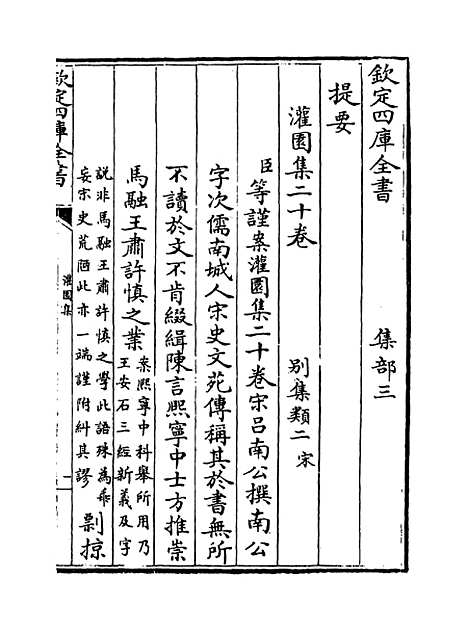 欽定四庫全書　集部三
提要
灌園集二十卷　別集類二宋
臣等謹案灌園集二十卷宋呂南公撰南公
字次儒南城人宋史文苑傳稱其於書無所
不讀於文不肯綴緝陳言熙寧中士方推崇
馬融王肅許慎之業案熙寧中科舉所用乃王安石三經新義及字
說非馬融王肅許慎之學此語殊為乖妄宋史荒陋此亦一端謹附糾其謬剽掠
欽定四庫全書
灌園集
一